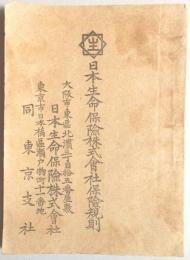 生
日本生命保險株式會社保險規則
大阪市東區北濱二百拾五番屋敷
日本生命保險株式會社
東京市日本橋區瀬戸物町十一番地
同東京支社